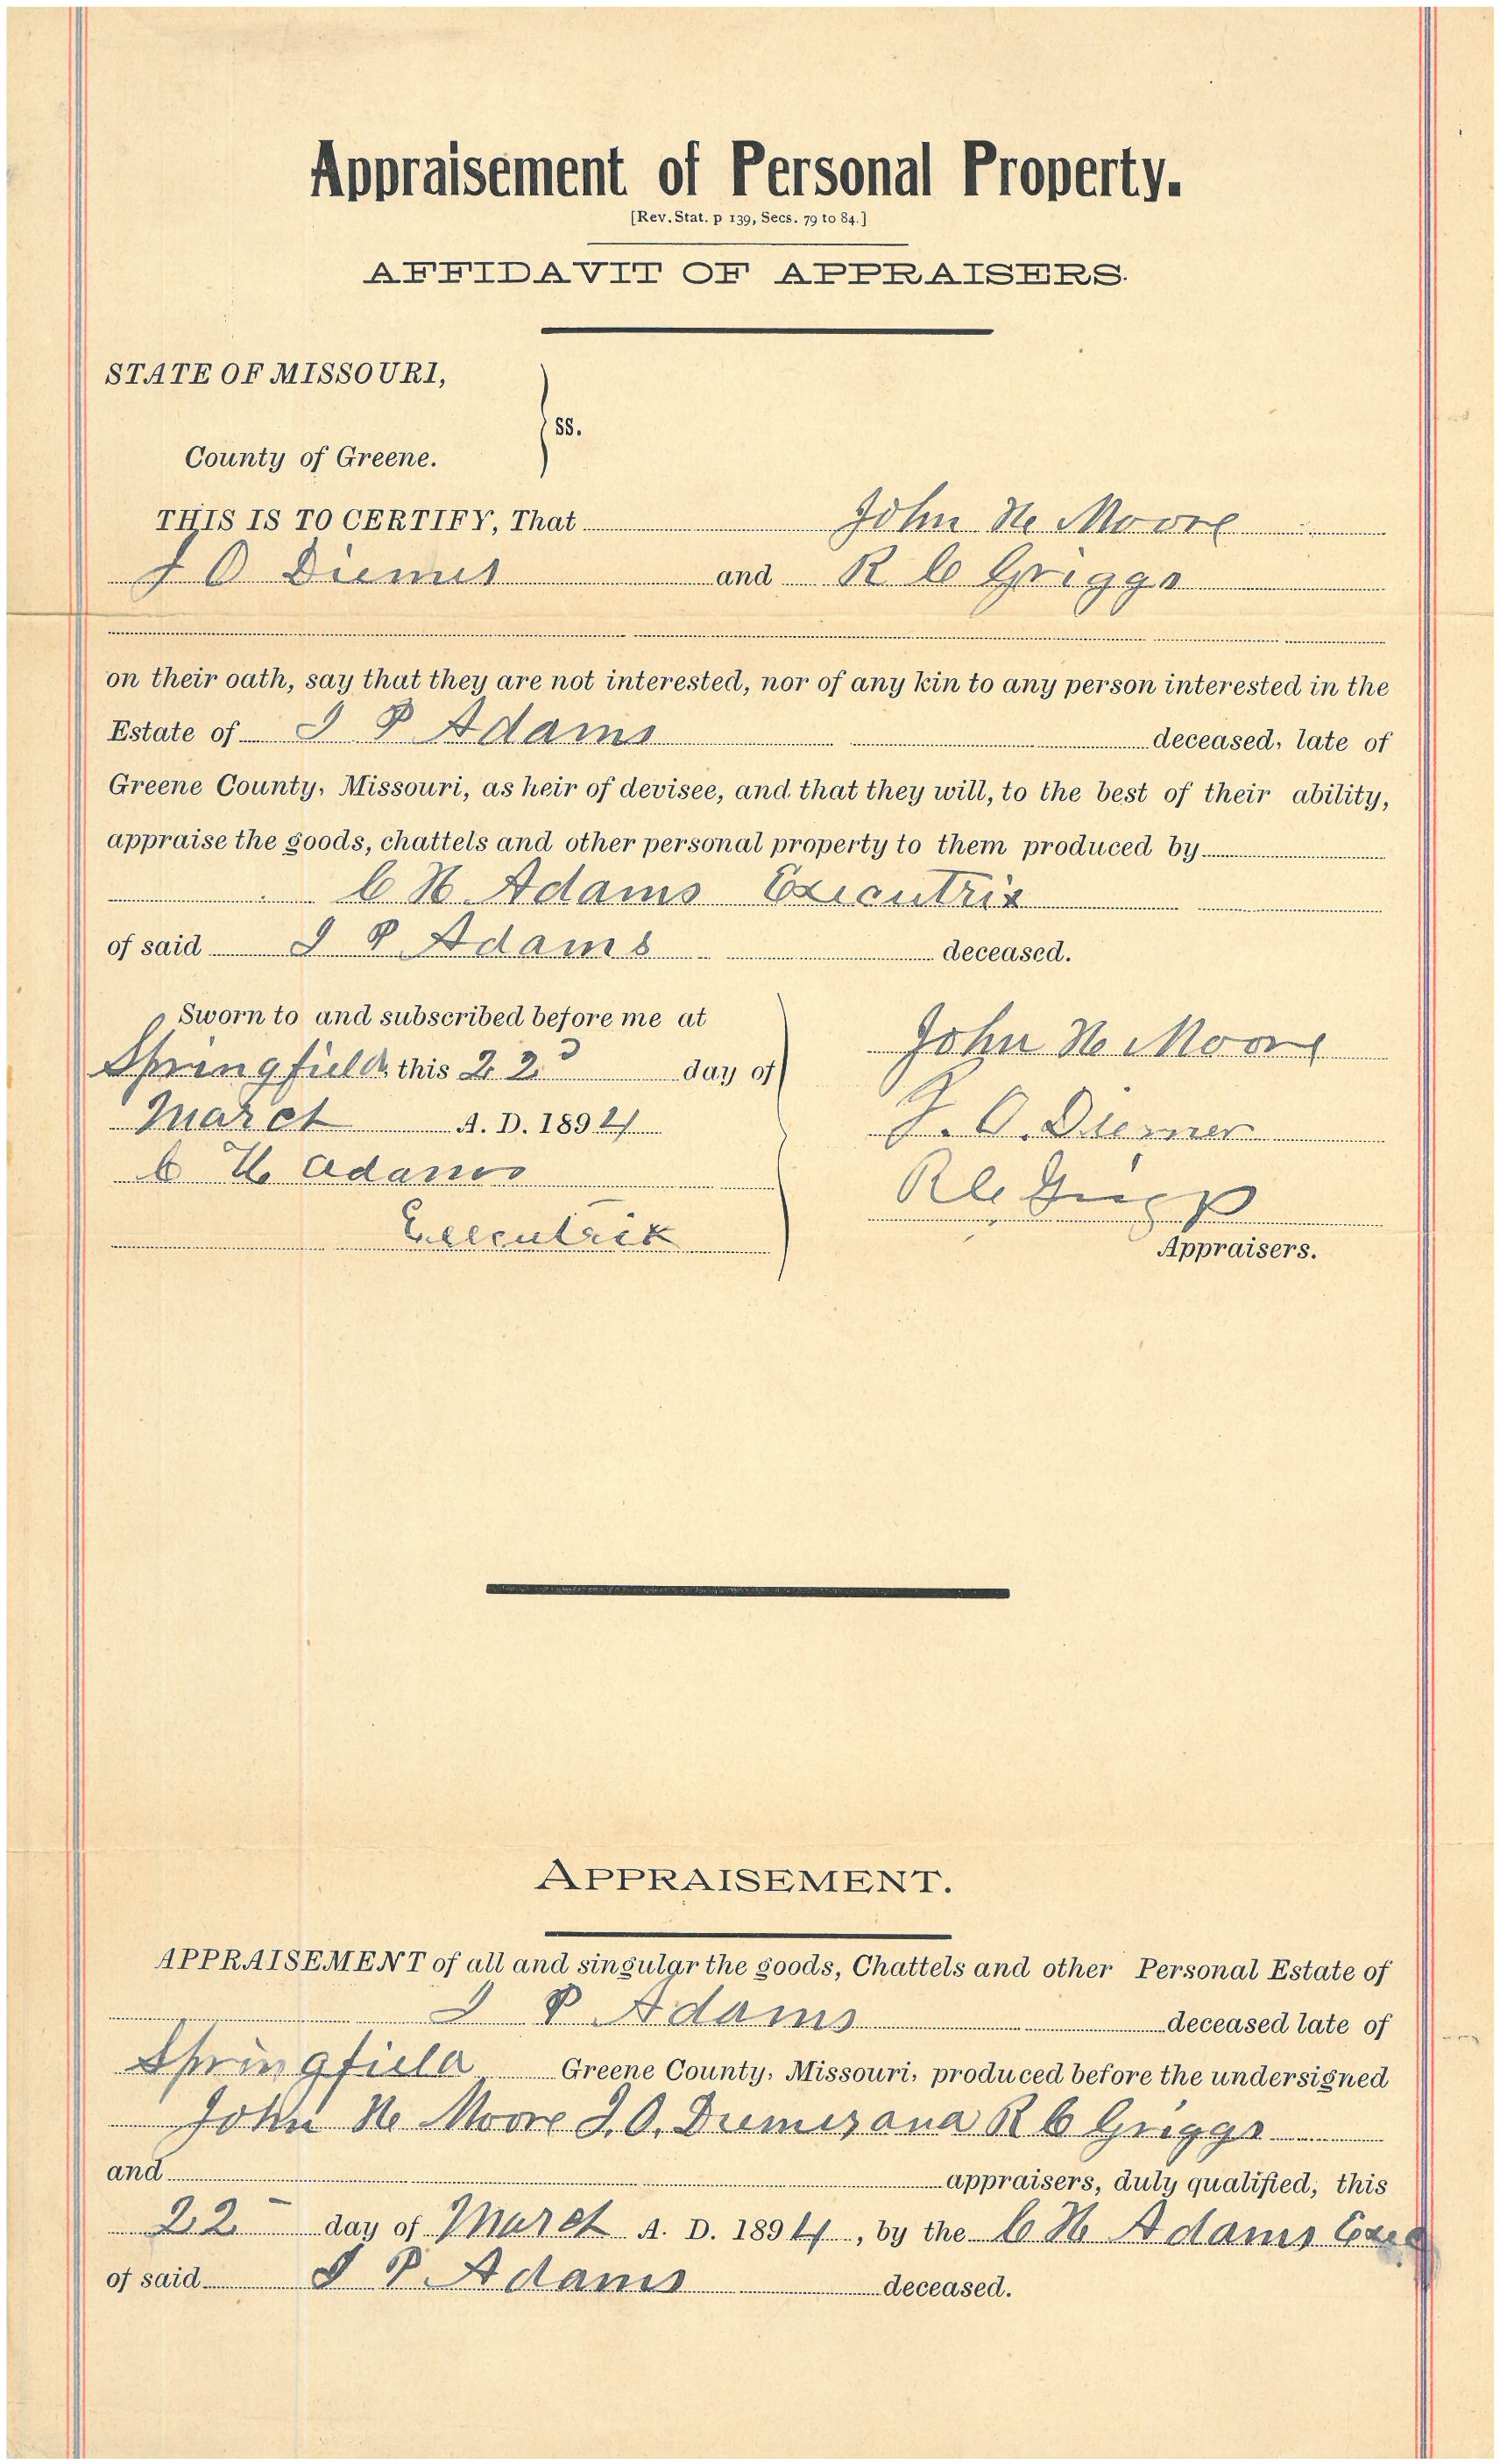 Appraisement of Personal Property.
[Rev. Stat. p 139, Secs. 79 to 84.]
AFFIDAVIT OF APPRAISERS.
STATE OF MISSOURI,
ss.
County of Greene.
THIS IS TO CERTIFY, That John H. Moore
and R C Griggs
on their oath, say that they are not interested, nor of any kin to any person interested in the
Estate of P Adams deceased, late of
Greene County, Missouri, as heir of devisee, and that they will, to the best of their ability,
appraise the goods, chattels and other personal property to them produced by
C H Adams Executrix
of said P Adams deceased.
Sworn to and subscribed before me at
Springfield this 22d day of
March A. D. 1894
C H Adams
Executrix
John H Moore
O. Diemer
R C Griggs
Appraisers.
APPRAISEMENT.
APPRAISEMENT of all and singular the goods, Chattels and other Personal Estate of
P Adams deceased late of
Springfield Greene County, Missouri, produced before the undersigned
John H Moore O. and R C Griggs
and appraisers, duly qualified, this
22 day of March A. D. 1894, by the C H Adams Exec
of said P Adams deceased.